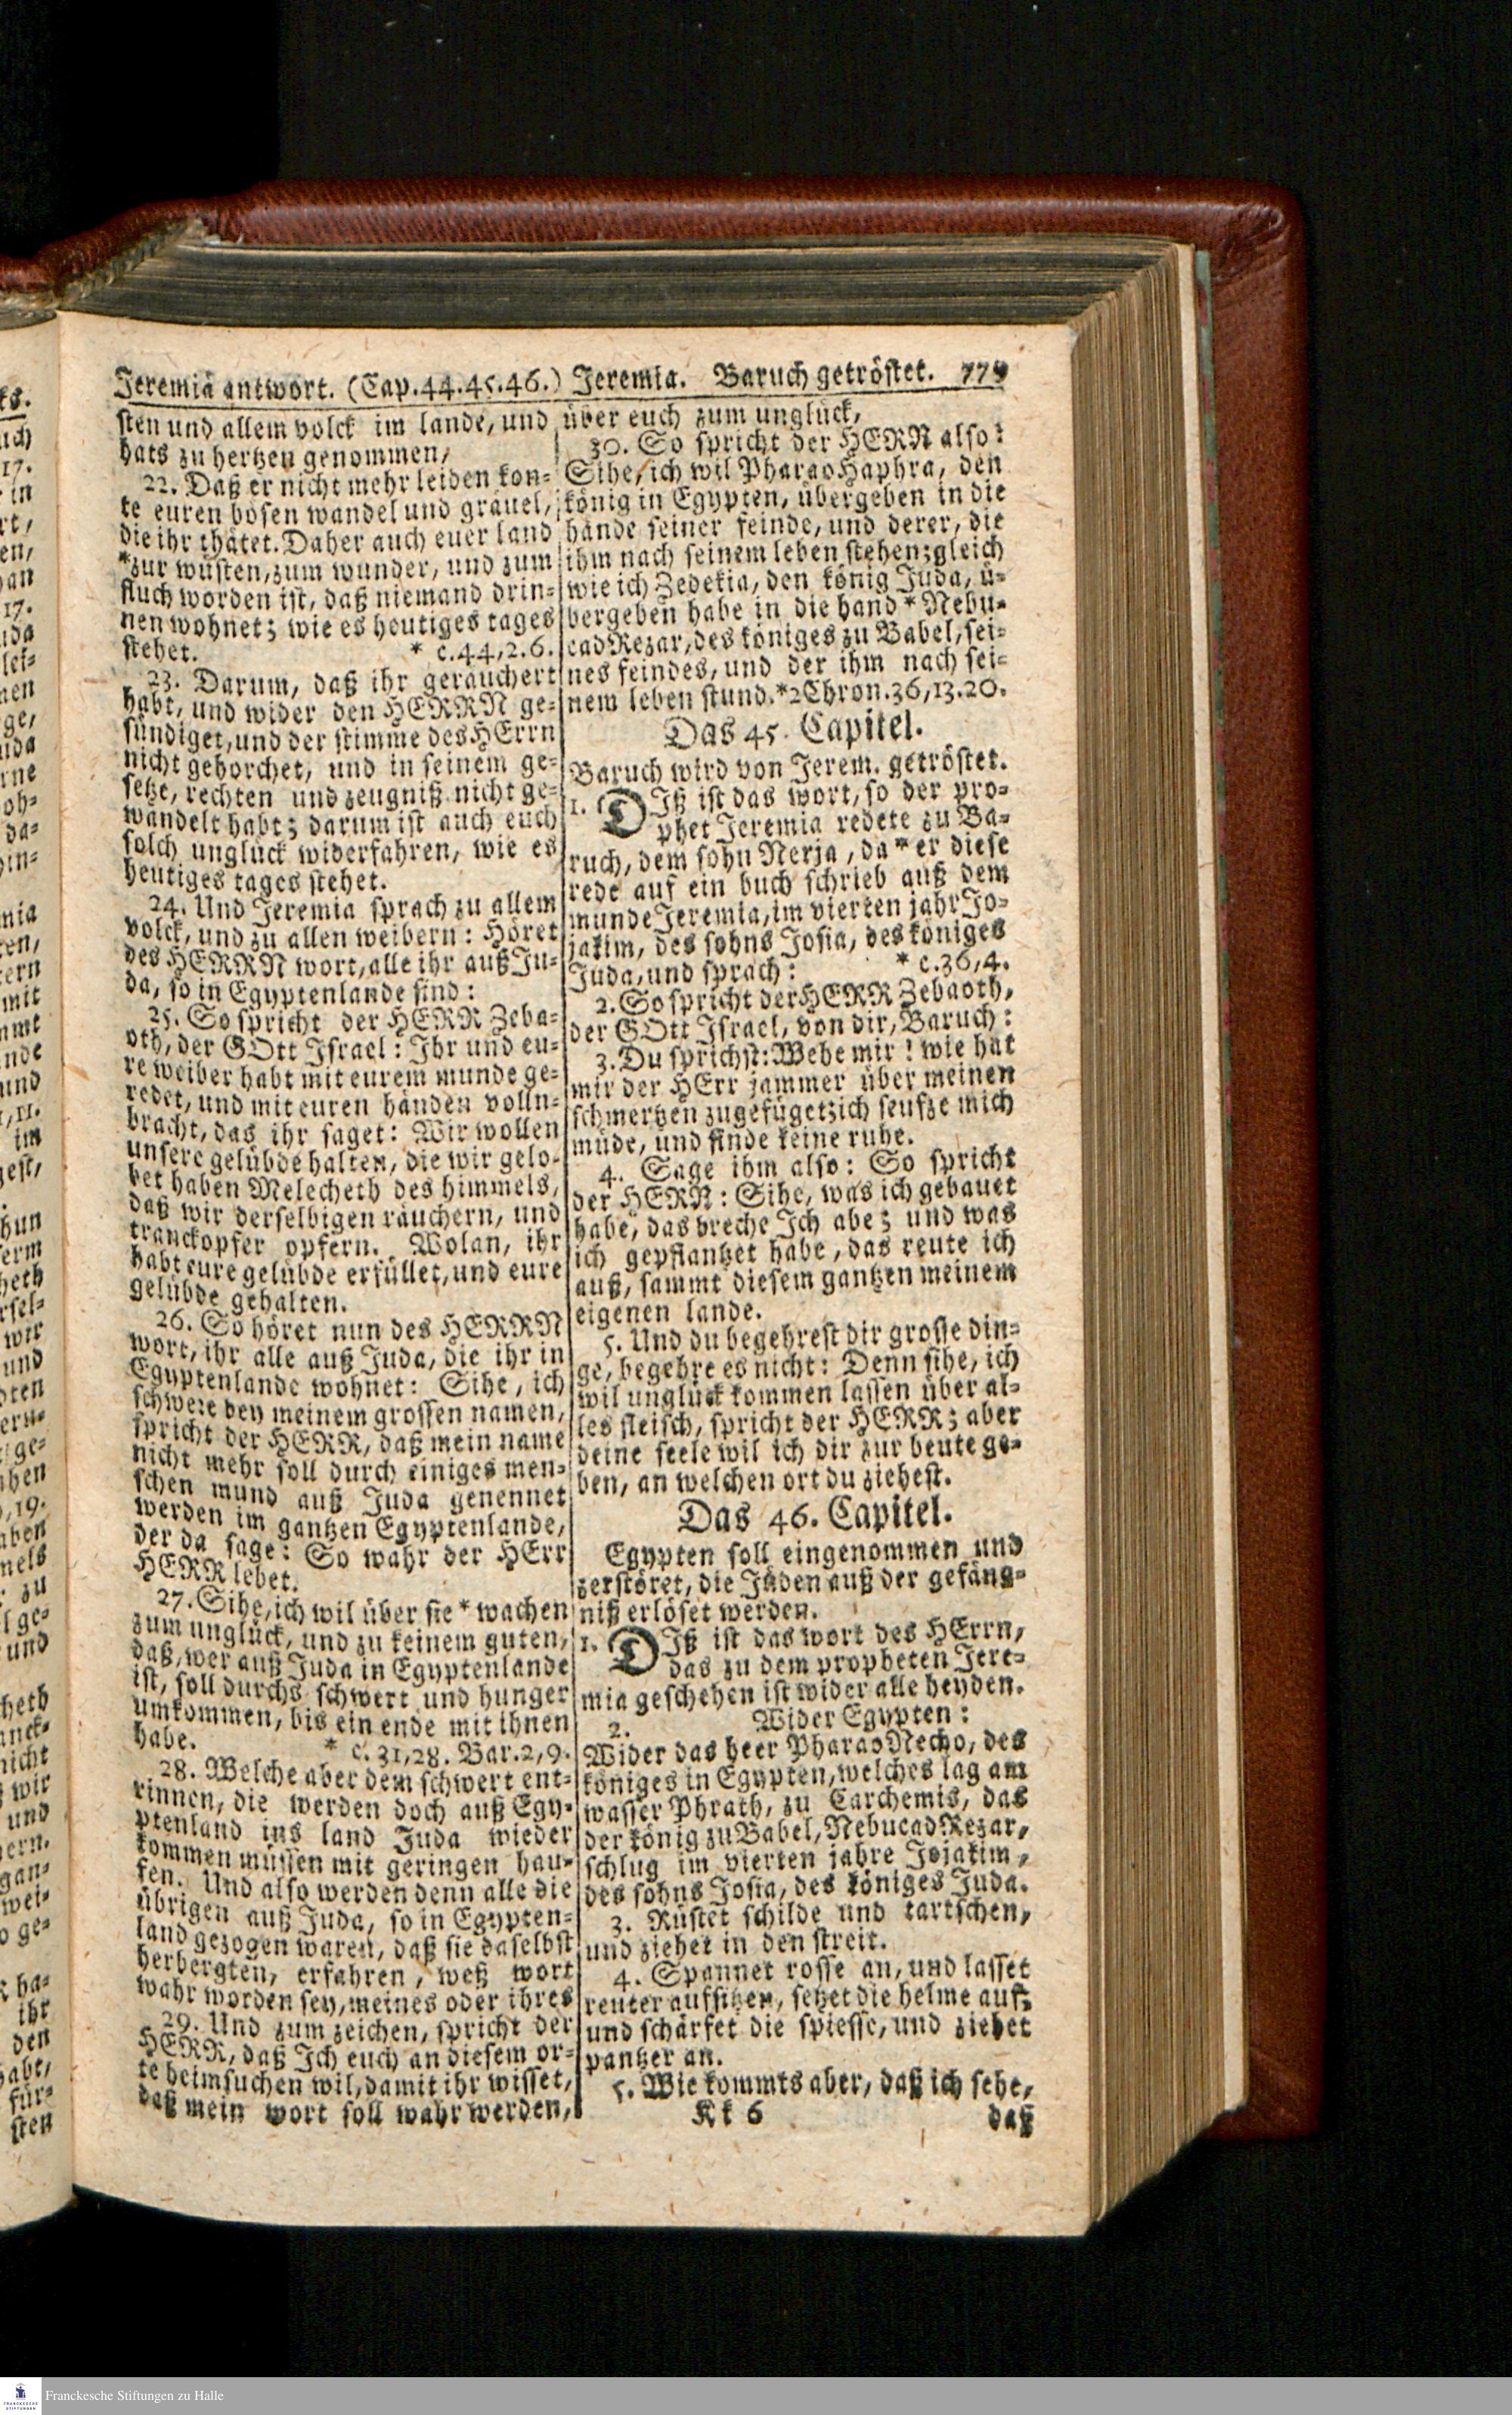 Jeremiä antwort. (Cap.44.45.46.) Jeremia. Baruch getröstet. 779
sten und allem volck im lande, und
hats zu hertzen genommen,
22. Daß er nicht mehr leiden kon-
te euren bösen wandel und gräuel,
die ihr thätet. Daher auch euer land
*zur wüsten, zum wunder, und zum
fluch worden ist, daß niemand drin-
nen wohnet; wie es heutiges tages
stehet. * c.44,2.6.
23. Darum, daß ihr geräuchert
habt, und wider den HERRN ge-
sündiget, und der stimme des HErrn
nicht gehorchet, und in seinem ge-
setze, rechten und zeugniß nicht ge-
wandelt habt; darum ist auch euch
solch unglück widerfahren, wie es
heutiges tages stehet.
24. Und Jeremia sprach zu allem
volck, und zu allen weibern: Höret
des HERRN wort, alle ihr auß Ju-
da, so in Egyptenlande sind:
25. So spricht der HERR Zeba-
oth, der GOtt Israel: Ihr und eu-
re weiber habt mit eurem munde ge-
redet, und mit euren händen volln-
bracht, das ihr saget: Wir wollen
unsere gelübde halten, die wir gelo-
bet haben Melecheth des himmels,
daß wir derselbigen räuchern, und
tranckopfer opfern. Wolan, ihr
habt eure gelübde erfüllet, und eure
gelübde gehalten.
26. So höret nun des HERRN
wort, ihr alle auß Juda, die ihr in
Egyptenlande wohnet: Sihe, ich
schwere bey meinem grossen namen,
spricht der HERR, daß mein name
nicht mehr soll durch einiges men-
schen mund auß Juda genennet
werden im gantzen Egyptenlande,
der da sage: So wahr der HErr
HERR lebet.
27. Sihe, ich wil über sie * wachen
zum unglück, und zu keinem guten,
daß, wer auß Juda in Egyptenlande
ist, soll durchs schwert und hunger
umkommen, bis ein ende mit ihnen
habe. * c. 31,28. Bar.2,9.
28. Welche aber dem schwert ent-
rinnen, die werden doch auß Egy-
ptenland ins land Juda wieder
kommen müssen mit geringen hau-
fen. Und also werden denn alle die
übrigen auß Juda, so in Egypten-
land gezogen waren, daß sie daselbst
herbergten, erfahren, weß wort
wahr worden sey, meines oder ihres
29. Und zum zeichen, spricht der
HERR, daß Ich euch an diesem or-
te heimsuchen wil, damit ihr wisset,
daß mein wort soll wahr werden,
über euch zum unglück,
30. So spricht der HERR also:
Sihe, ich wil Pharao Haphra, den
könig in Egypten, übergeben in die
hände seiner feinde, und derer, die
ihm nach seinem leben stehen; gleich
wie ich Zedekia, den könig Juda, ü-
bergeben habe in die hand * Nebu-
cadRezar, des königes zu Babel, sei-
nes feindes, und der ihm nach sei-
nem leben stund. *2Chron.36,13.20.
Das 45. Capitel.
Baruch wird von Jerem. getröstet.
1. DIß ist das wort, so der pro-
phet Jeremia redete zu Ba-
ruch, dem sohn Nerja, da * er diese
rede auf ein buch schrieb auß dem
munde Jeremia, im vierten jahr Jo-
jakim, des sohns Josia, des königes
Juda, und sprach: * c.36,4.
2. So spricht der HERR Zebaoth,
der GOtt Israel, von dir, Baruch:
3. Du sprichst: Wehe mir! wie hat
mir der HErr jammer über meinen
schmertzen zugefüget; ich seufze mich
müde, und finde keine ruhe.
4. Sage ihm also: So spricht
der HERR: Sihe, was ich gebauet
habe, das breche Ich abe; und was
ich gepflantzet habe, das reute ich
auß, sammt diesem gantzen meinem
eigenen lande.
5. Und du begehrest dir grosse din-
ge, begehre es nicht: Denn sihe, ich
wil unglück kommen lassen über al-
les fleisch, spricht der HERR; aber
deine seele wil ich dir zur beute ge-
ben, an welchen ort du ziehest.
Das 46. Capitel.
Egypten soll eingenommen und
zerstöret, die Jüden auß der gefäng-
niß erlöset werden.
1. DIß ist das wort des HErrn,
das zu dem propheten Jere-
mia geschehen ist wider alle heyden.
2. Wider Egypten:
Wider das heer Pharao Necho, des
königes in Egypten, welches lag am
wasser Phrath, zu Carchemis, das
der könig zu Babel, NebucadRezar,
schlug im vierten jahre Jojakim,
des sohns Josia, des königes Juda.
3. Rüstet schilde und tartschen,
und ziehet in den streit.
4. Spannet rosse an, und lasset
reuter aufsitzen, setzet die helme auf,
und schärfet die spiesse, und ziehet
pantzer an.
5. Wie kommts aber, daß ich sehe,
Kk 6 daß
Franckesche Stiftungen zu Halle